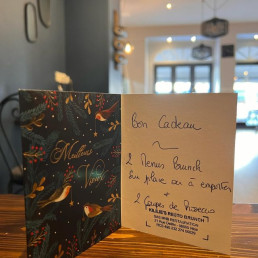 Meilleurs
Vœux
Bon Cadeau
2 Menus Brunch
Sur place ou à emporter
+
2 Coupes de Prosecco